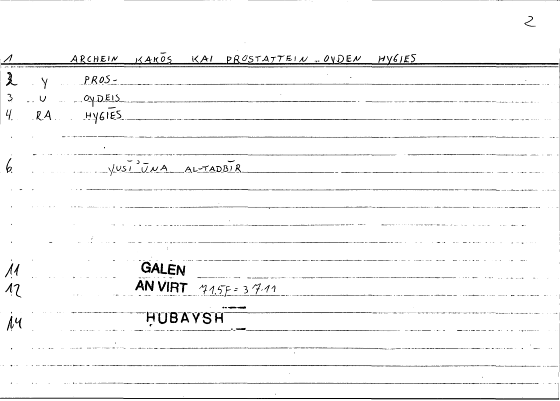 2
1 ARCHEIN KAKŌS KAI PROSTATTEIN .. OYDEN HYGIES
2 Y PROS-
3 U OYDEIS
4. RA HYGIĒS
6. YUSĪ'ŪNA AL-TADBĪR
11 GALEN
12 AN VIRT 71.5F = 37.11
14 ḤUBAYSH